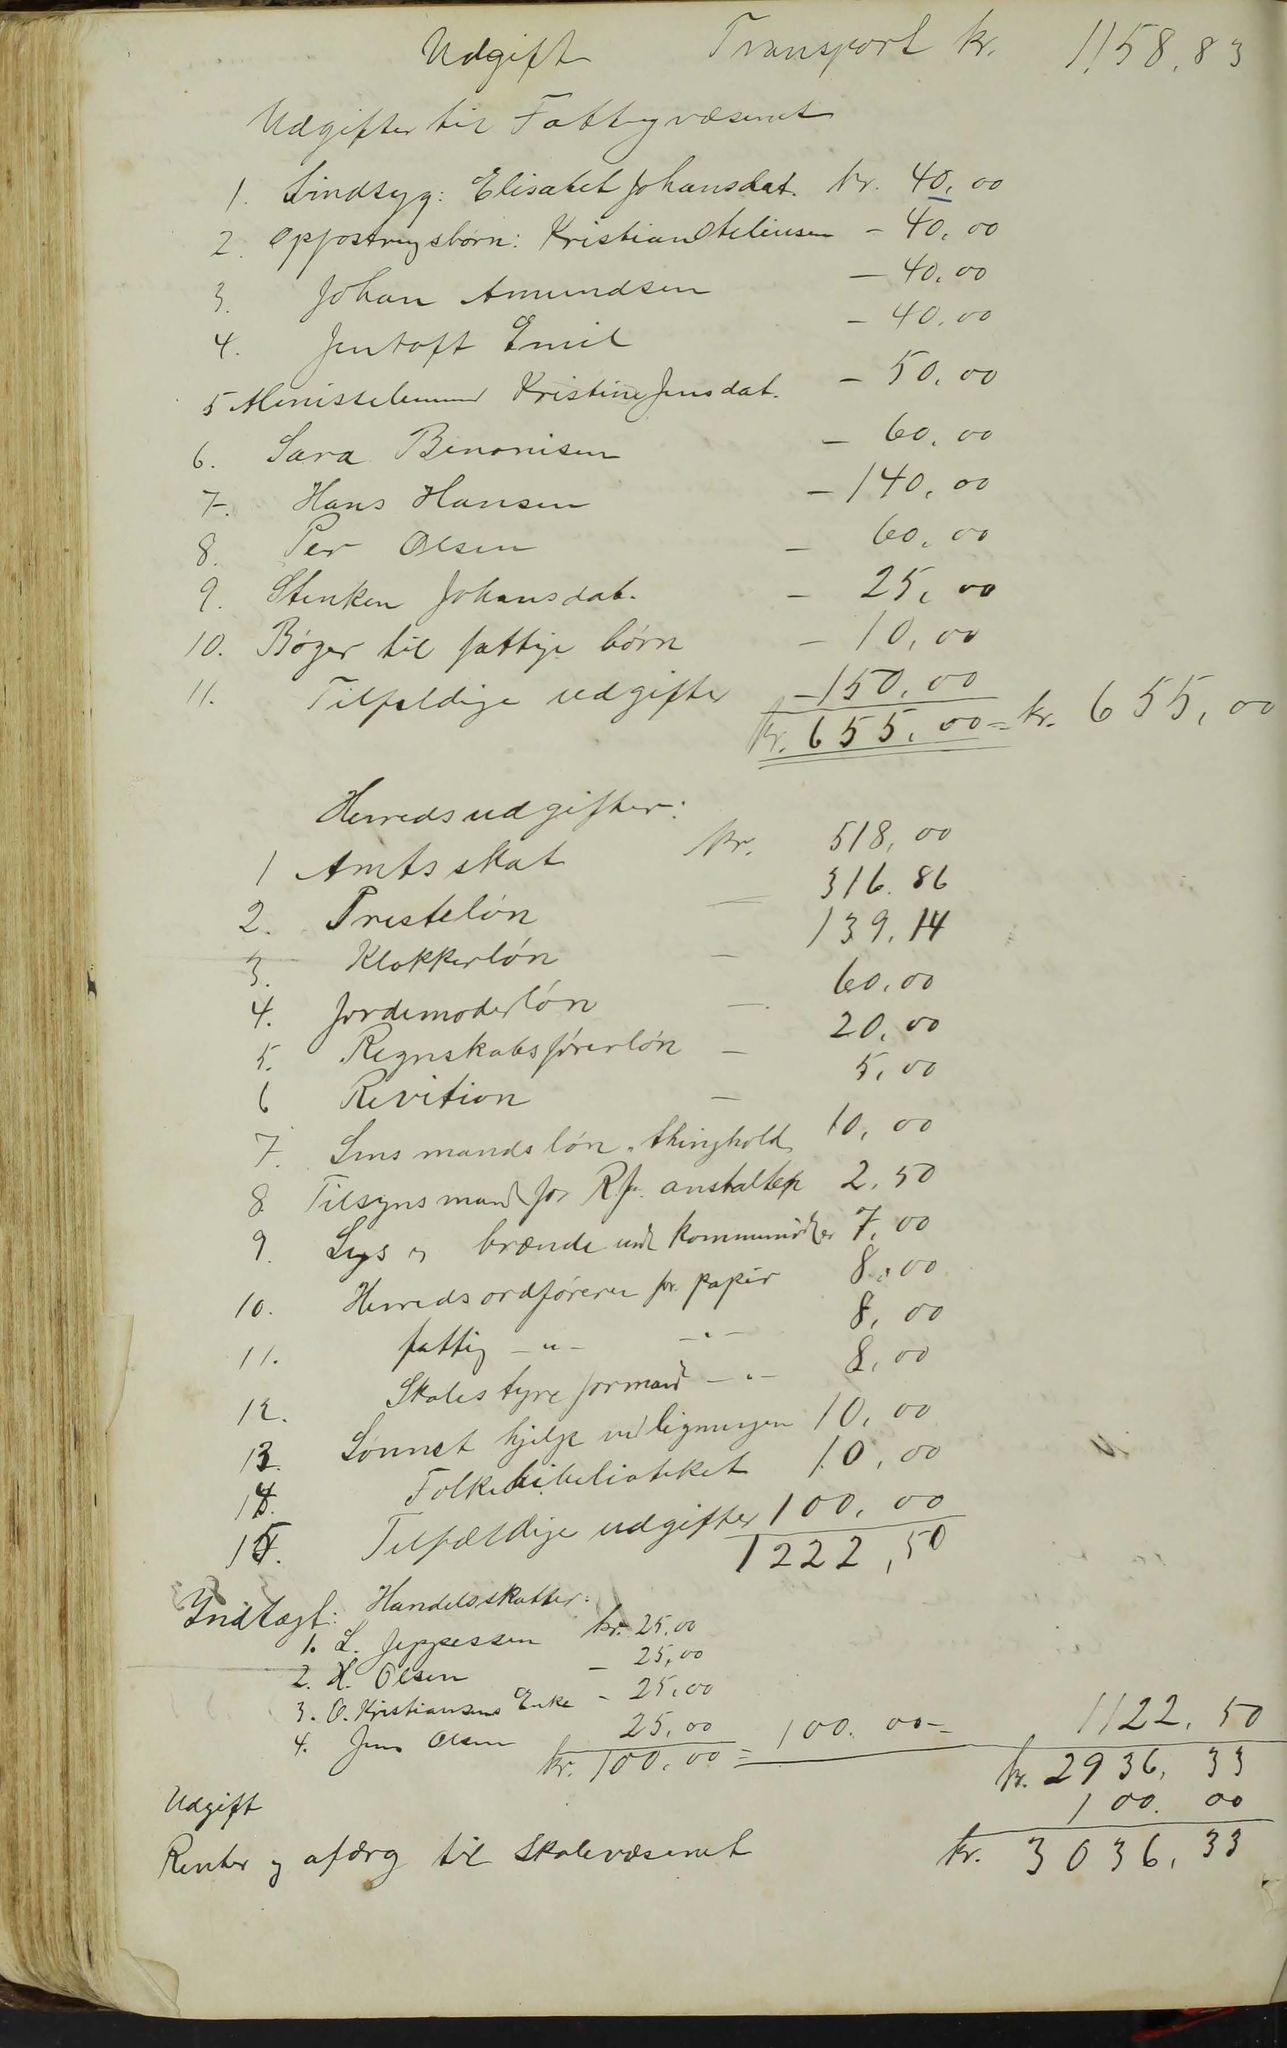 Udgift Transport kr. 1158,83
Udgifter til Fattigvæsenet
1. Sindsyg: Elisabet Johansdat. Kr. 40,00
2. Opfostringsbørn: Kristian Steliusen - 40,00
3. Johan Amundsen - 40,00
4. Jentoft Emil - 40,00
5 Kristine Jensdat. - 50,00
6. Sara Benonisen - 60,00
7. Hans Hansen - 140,00
8. Per Olsen - 60,00
9. Stenken Johansdat. - 25,00
10. Bøger til fattige børn - 10,00
11. Tilfeldige udgifter - 150,00
Kr. 655,00 = kr. 655,00
Herredsudgifter:
1 Amtsskat Kr. 518,00
2. Presteløn - 316.86
3. Klokkerløn - 139,14
4. Jordemoderløn - 60,00
5. Regnskabsførerløn - 20,00
6 Revition - 5,00
7. Lensmandsløn. thinghold 10,00
8. Tilsynsmand for Rp. anstalten 2,50
9. Lys og brænde und kommunid.er 7,00
10. Herredsordføreren for papir 8,00
11. fattig -"- -"- 8,00
12. Skolestyreformand -"- 8,00
13. Lønnet hjelp ved ligningen 10,00
14. Folkebibelioteket 10,00
15. Tilfældige udgifter 100,00
1222,50
Indtægt: Handelsskatter:
1. L. Jeppessen kr. 25,00
2. H. Olsen - 25,00
3. O. Kristiansens Enke - 25,00
4. Jens Olsen 25,00
kr. 100,00 = 100.00 - 1122.50
kr. 2936,33
Udgift 100.00
Renter og afdrg til Skolevæsenet kr. 3036,33